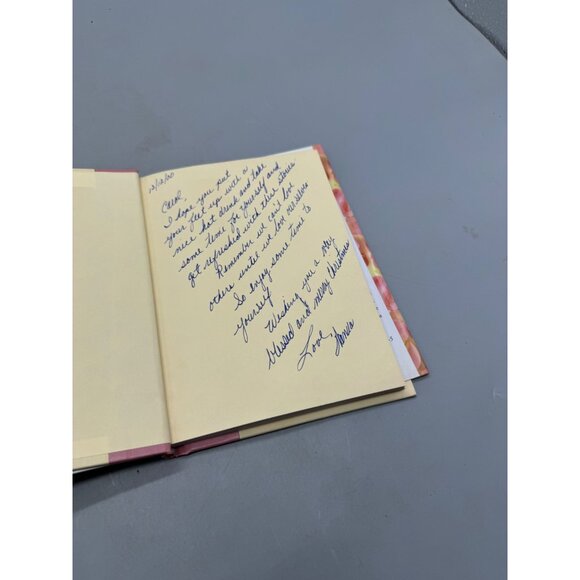 12/12/00
Carol,
I hope you put
your feet up with a
nice hot drink and take
some time for yourself and
get refreshed with these stories
Remember we can't love
others until we love ourselves
So enjoy some time to
yourself
Wishing you a very
blessed and merry Christmas
Love,
Tonya